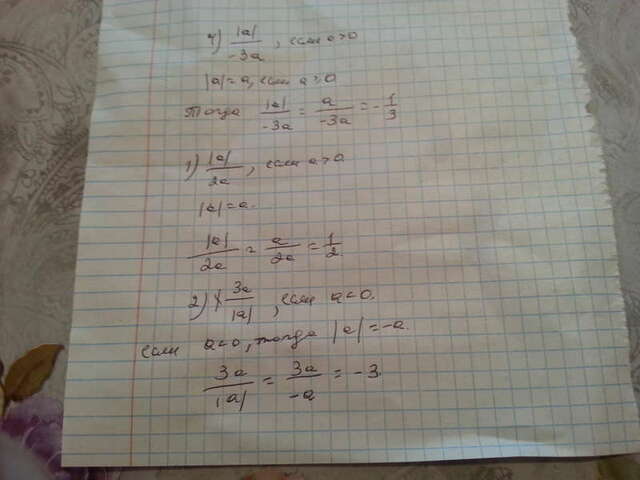 4) |a|/-3a, если a>0
|a|=a, если a>0
Тогда |a|/-3a = a/-3a = -1/3
1) |a|/2a, если a>0
|a|=a.
|a|/2a = a/2a = 1/2
2) 3a/|a|, если a<0.
если a<0, тогда |a|=-a.
3a/|a| = 3a/-a = -3